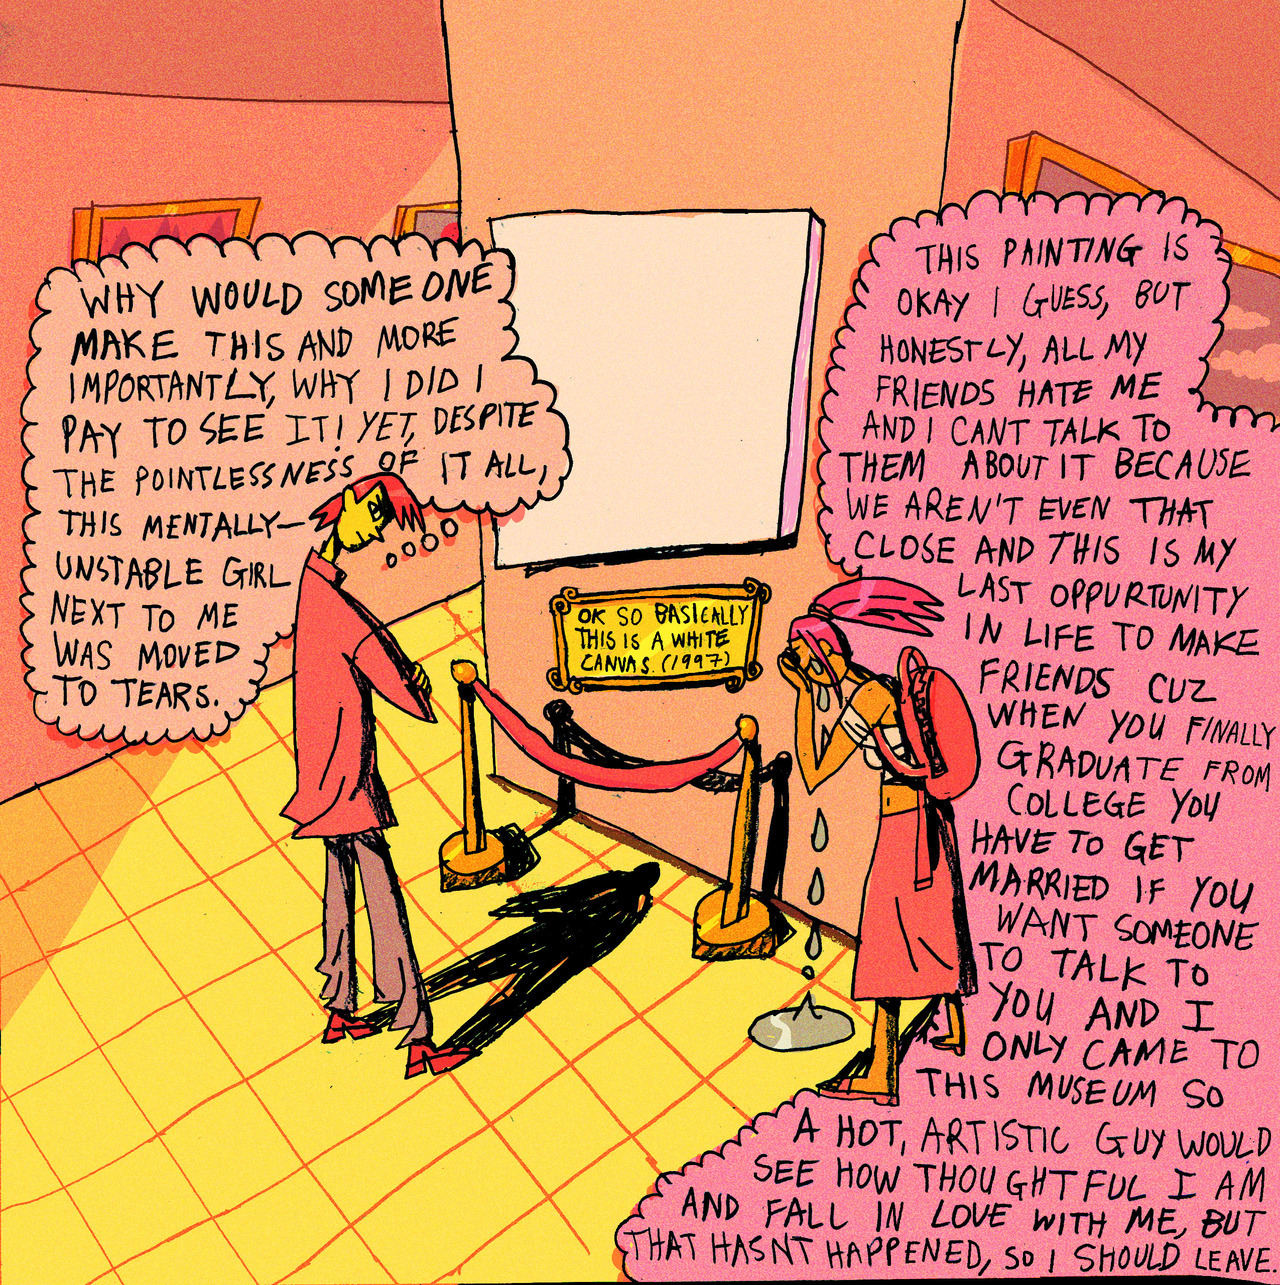 WHY WOULD SOMEONE
MAKE THIS AND MORE
IMPORTANTLY, WHY I DID I
PAY TO SEE IT! YET, DESPITE
THE POINTLESSNESS OF IT ALL,
THIS MENTALLY—
UNSTABLE GIRL
NEXT TO ME
WAS MOVED
TO TEARS.
OK SO BASICALLY
THIS IS A WHITE
CANVAS. (1997)
THIS PAINTING IS
OKAY I GUESS, BUT
HONESTLY, ALL MY
FRIENDS HATE ME
AND I CANT TALK TO
THEM ABOUT IT BECAUSE
WE AREN'T EVEN THAT
CLOSE AND THIS IS MY
LAST OPPURTUNITY
IN LIFE TO MAKE
FRIENDS CUZ
WHEN YOU FINALLY
GRADUATE FROM
COLLEGE YOU
HAVE TO GET
MARRIED IF YOU
WANT SOMEONE
TO TALK TO
YOU AND I
ONLY CAME TO
THIS MUSEUM SO
A HOT, ARTISTIC GUY WOULD
SEE HOW THOUGHTFUL I AM
AND FALL IN LOVE WITH ME, BUT
THAT HASNT HAPPENED, SO I SHOULD LEAVE.